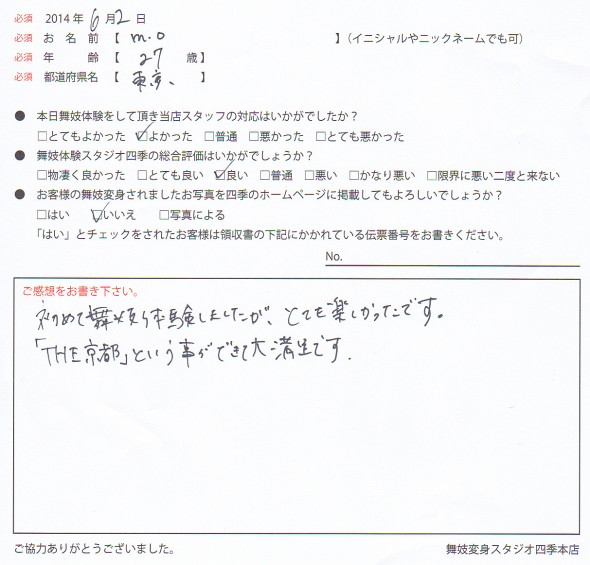 必須 2014年 6月 2日
必須 お名前【 m.o 】(イニシャルやニックネームでも可)
必須 年齢【 27 歳】
必須 都道府県名【 東京、 】
● 本日舞妓体験をして頂き当店スタッフの対応はいかがでしたか?
□とてもよかった ☑よかった □普通 □悪かった □とても悪かった
● 舞妓体験スタジオ四季の総合評価はいかがでしょうか?
□物凄く良かった □とても良い ☑良い □普通 □悪い □かなり悪い □限界に悪い二度と来ない
● お客様の舞妓変身されましたお写真を四季のホームページに掲載してもよろしいでしょうか?
□はい ☑いいえ □写真による
「はい」とチェックをされたお客様は領収書の下記にかかれている伝票番号をお書きください。
No.
ご感想をお書き下さい。
初めて舞妓体験しましたが、とても楽しかったです。
「THE京都」という事ができて大満足です.
ご協力ありがとうございました。 舞妓変身スタジオ四季本店